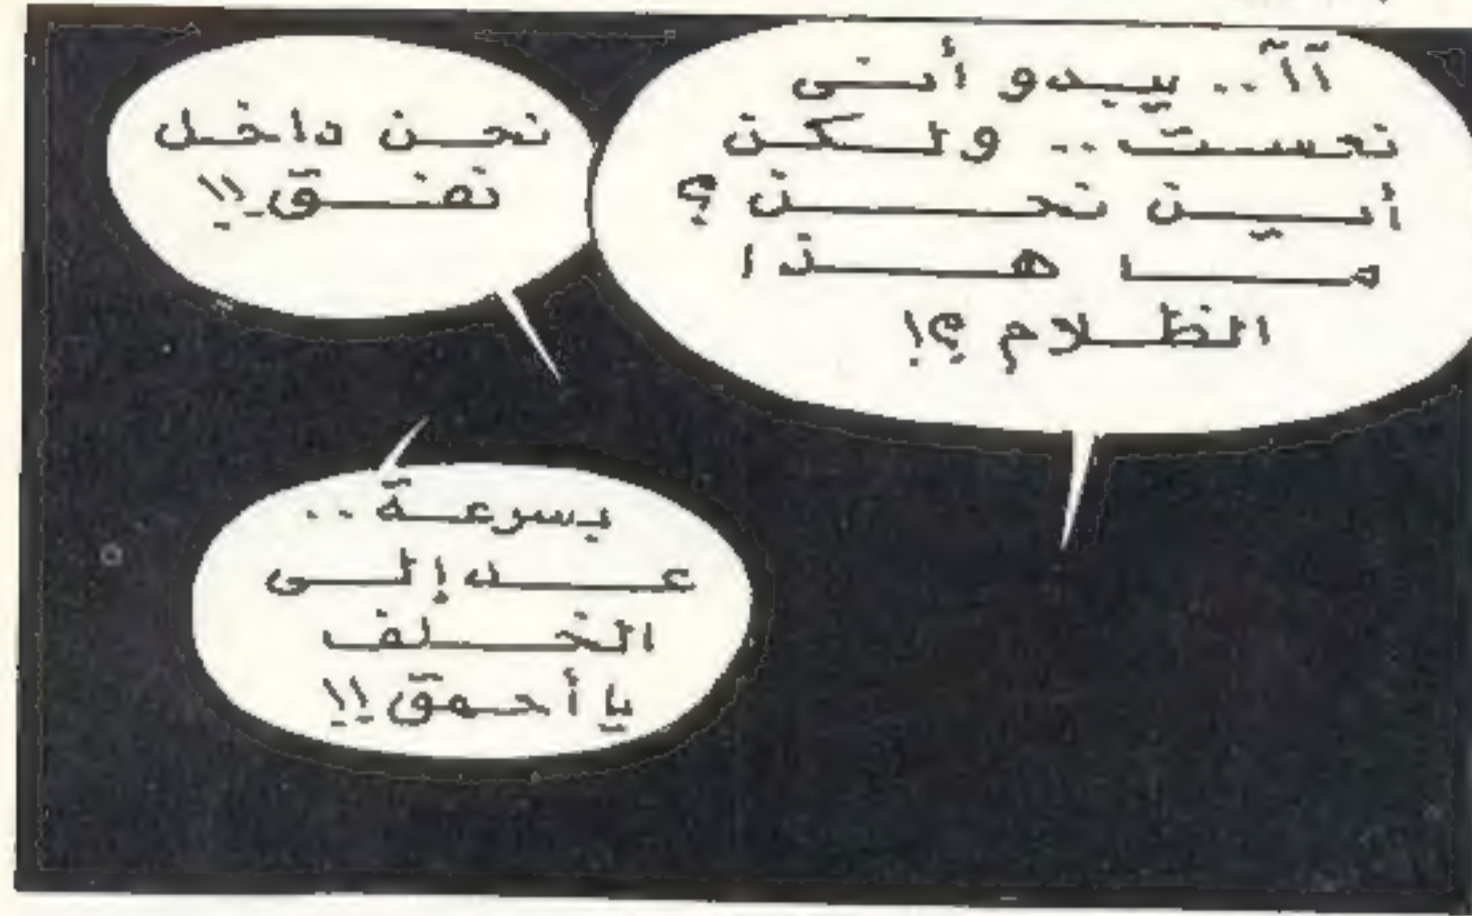 آآ.. يبدو أنى
نعست.. ولكن
أين نحن ؟
ما هذا
الظلام ؟!
نحن داخل
نفق !!
بسرعة..
عد إلى
الخلف
يا أحمق !!